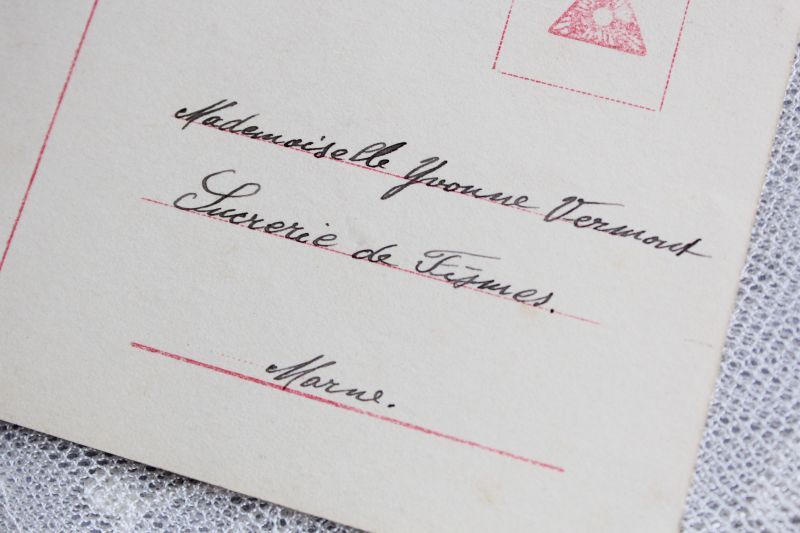 Mademoiselle Yvonne Vermont
Sucrerie de Fismes.
Marne.